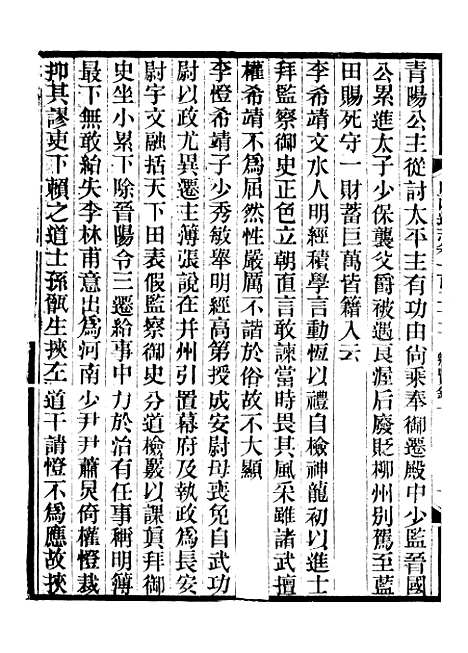 青陽公主從討太平主有功由尙乘奉御遷殿中少監晉國
公累進太子少保襲父爵被遇良渥后廢貶柳州別駕至藍
田賜死守一財蓄巨萬皆籍入云
李希靖文水人明經積學言動恆以禮自檢神龍初以進士
拜監察御史正色立朝直言敢諫當時畏其風采雖諸武擅
權希靖不爲屈然性嚴厲不諧於俗故不大顯
李憕希靖子少秀敏舉明經高第授成安尉母喪免自武功
尉以政尤異遷主薄張說在并州引置幕府及執政爲長安
尉宇文融括天下田表假監察御史分道檢覈以課眞拜御
史坐小累下除晉陽令三遷給事中力於治有任事稱明簿
最下無敢紿失李林甫意出爲河南少尹尹蕭炅倚權憕裁
抑其謬吏下賴之道士孫甑生挾左道干請憕不爲應故挾